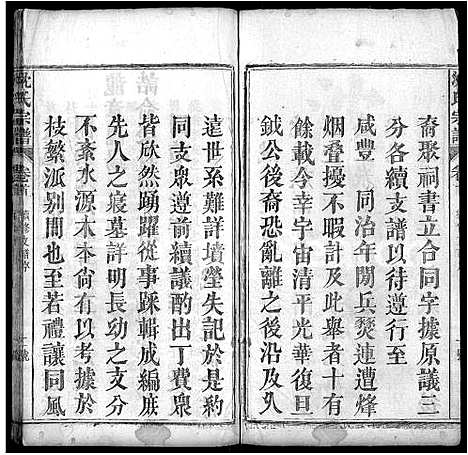 沈氏宗譜
裔聚祠書立合同字據原議三
分各續支譜以待舉行至
咸豐 同治年間兵燹連遭烽
烟疊擾不暇計及此舉者十有
餘載今幸宇宙清平光華復旦
鉞公後裔恐亂離之後沿及久
遠世系難詳墳瑩失記於是約
同支衆遵前續議酌出丁費衆
皆欣然踴躍從事踩輯成編庶
先人之寢墓詳明長幼之次序
不紊水源木本尙有以考據於
枝繁派別間也至若禮讓同風
沈氏宗譜 卷首